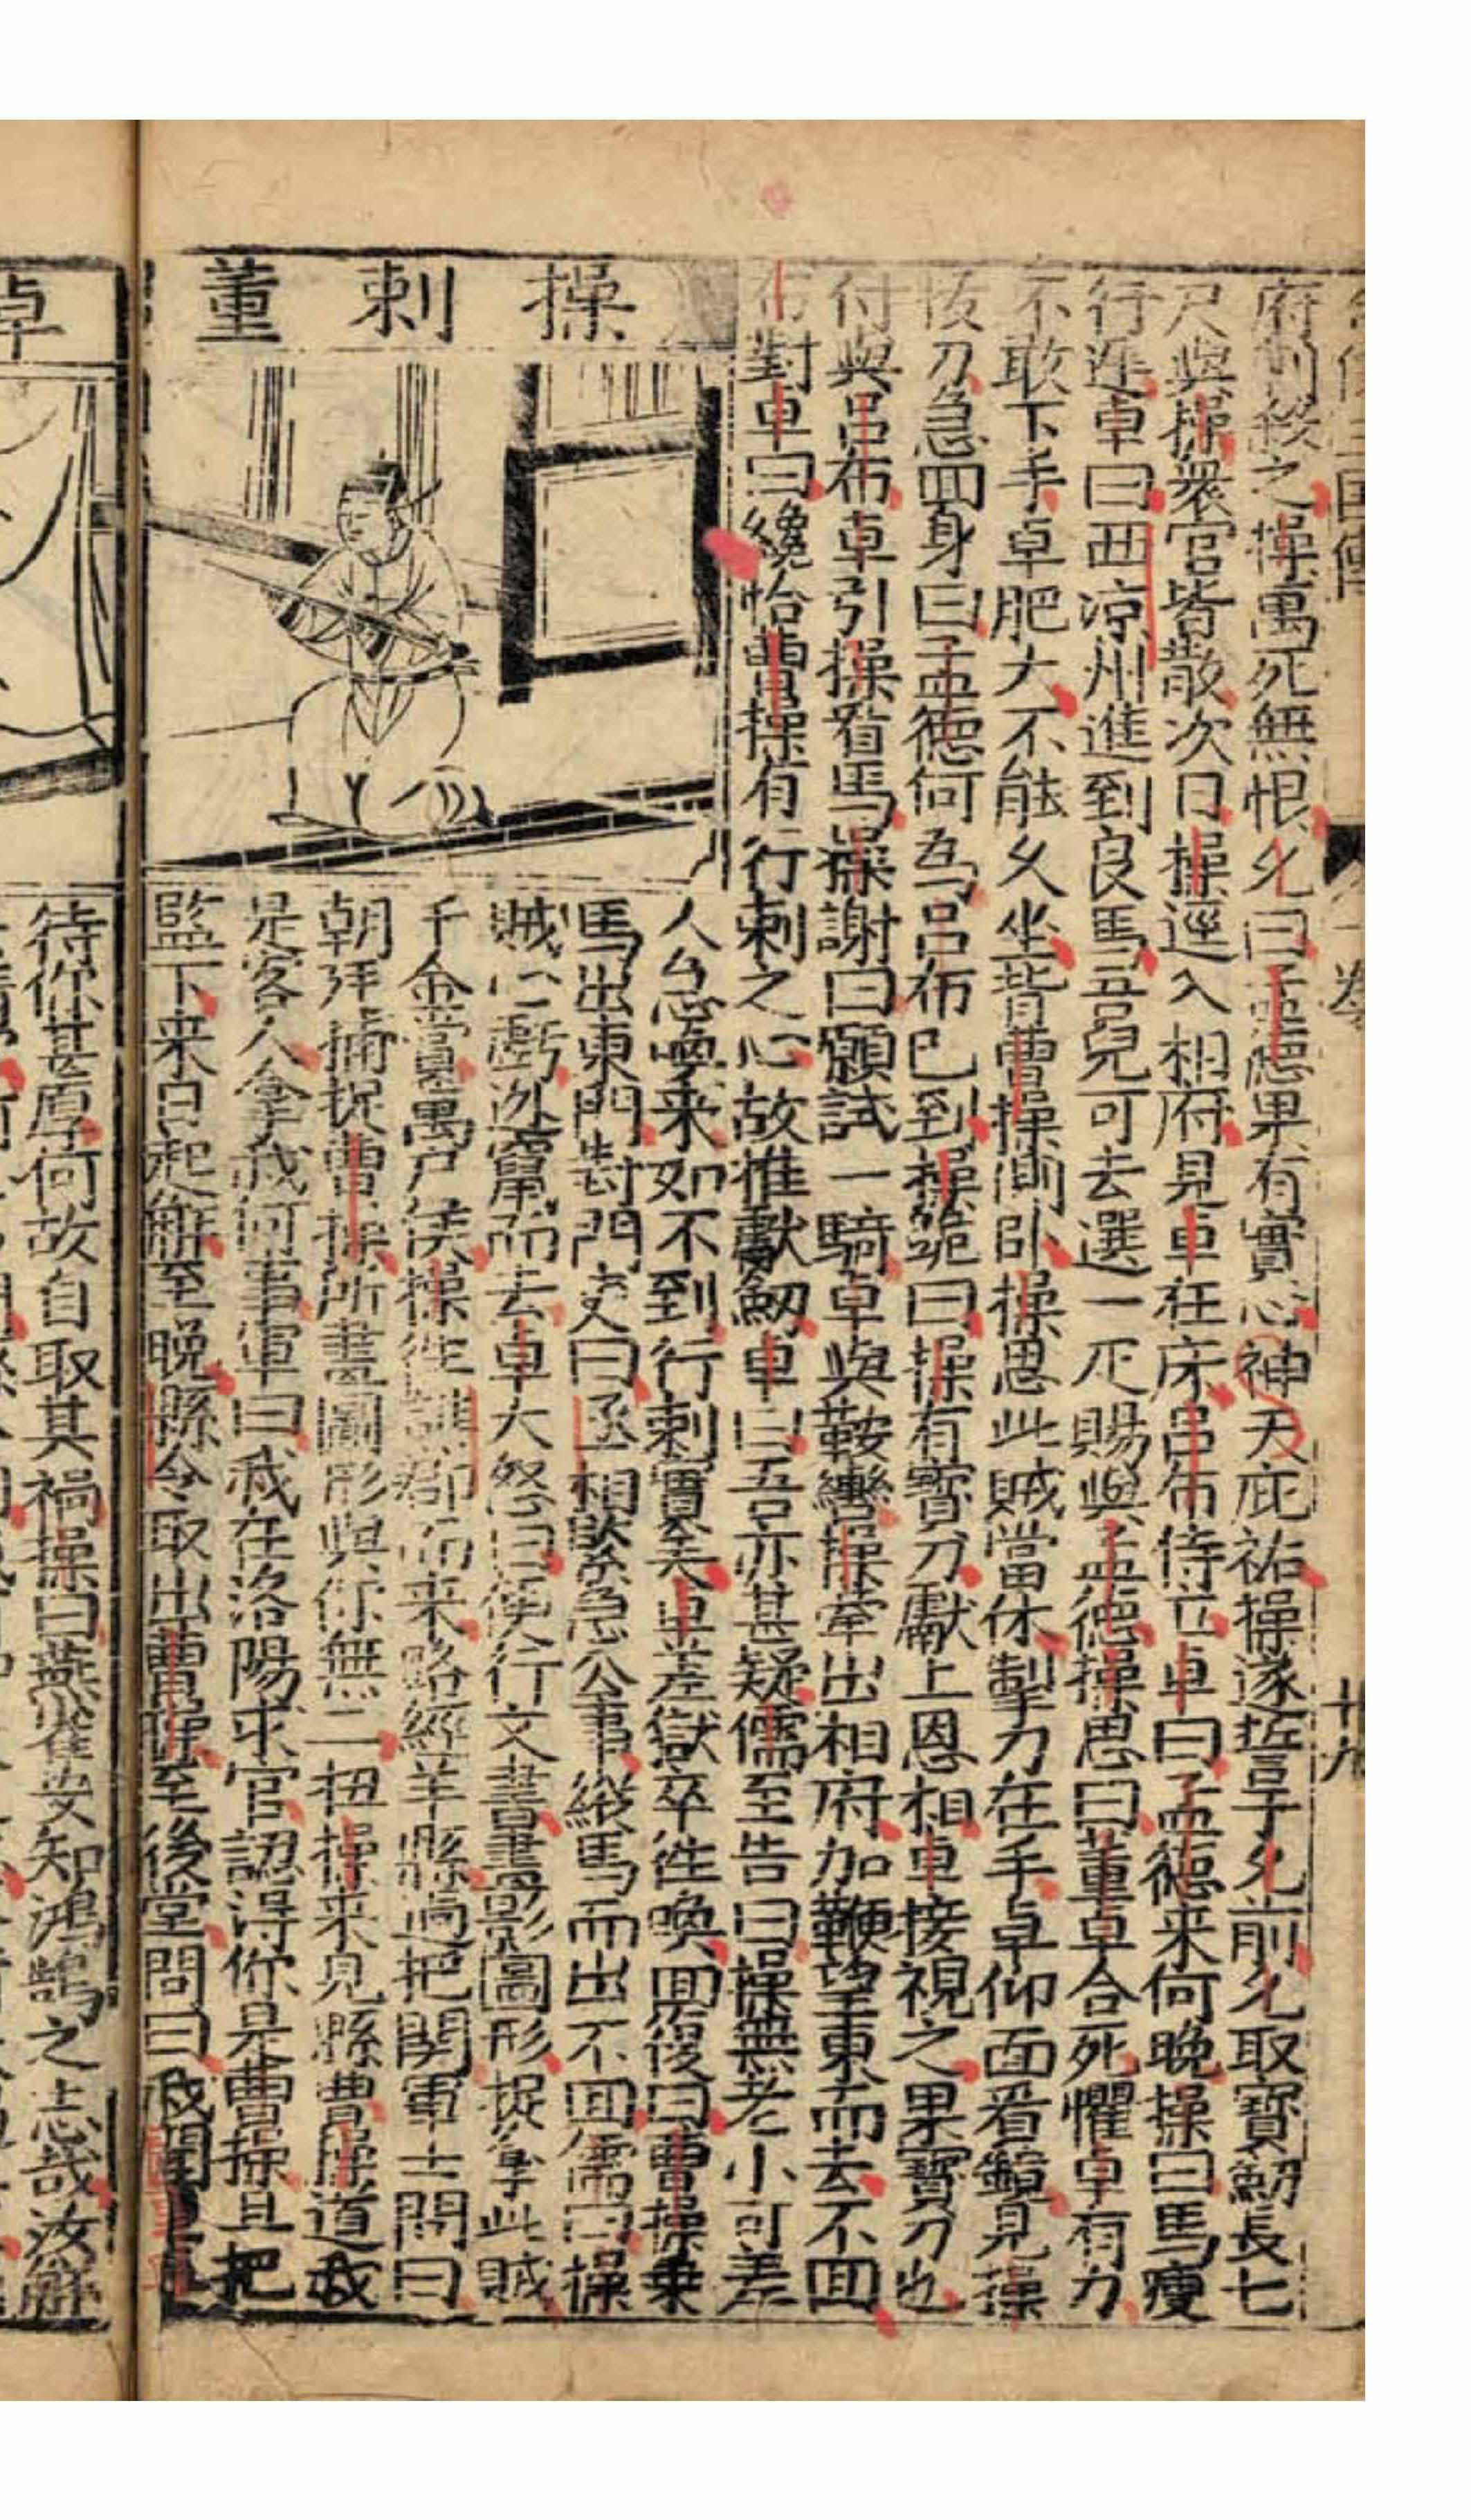 府刺殺之操萬死無恨允曰孟德果有實心神天庇祐操遂誓于允前允取寶劒長七
尺與操衆官皆散次日操逕入相府見卓在床呂布侍立卓曰孟德來何晚操曰馬瘦
行遲卓曰西凉州進到良馬吾兒可去選一疋賜與孟德操思曰董卓合死懼卓有力
不敢下手卓肥大不能久坐背曹操側卧操思此賊當休掣刀在手卓仰面看鏡見操
拔刀急回身曰孟德何為呂布已到操跪曰操有寳刀獻上恩相卓接視之果寳刀也
付與呂布卓引操看馬操謝曰願試一騎卓與鞍轡操牽出相府加鞭望東而去不回
布對卓曰纔恰曹操有行刺之心故推獻劒卓曰吾亦甚疑儒至告曰操無老小可差
人急喚来如不到行刺實矣卓差獄卒徃喚回復曰曹操乗
馬出東門对門吏曰丞相緊急公事縱馬而出不回儒曰操
賊心虧逃竄而去卓大怒曰便行文書畫影圖形捉拿此賊
千金賞萬户侯操徃譙郡而来路經羊縣過把関軍士問曰
朝拜捕捉曹操所畫圖形與你無二扭操来見縣曹操道我
是客人拿我何事軍曰我在洛陽求官認得你是曹操且把
監下来日起解至晚縣令取出曹操至後堂問曰我聞董卓
待你甚厚何故自取其禍操曰燕雀安知鴻鵠之志哉汝解
操 刺 董
卓
三国傳
一卷
十九